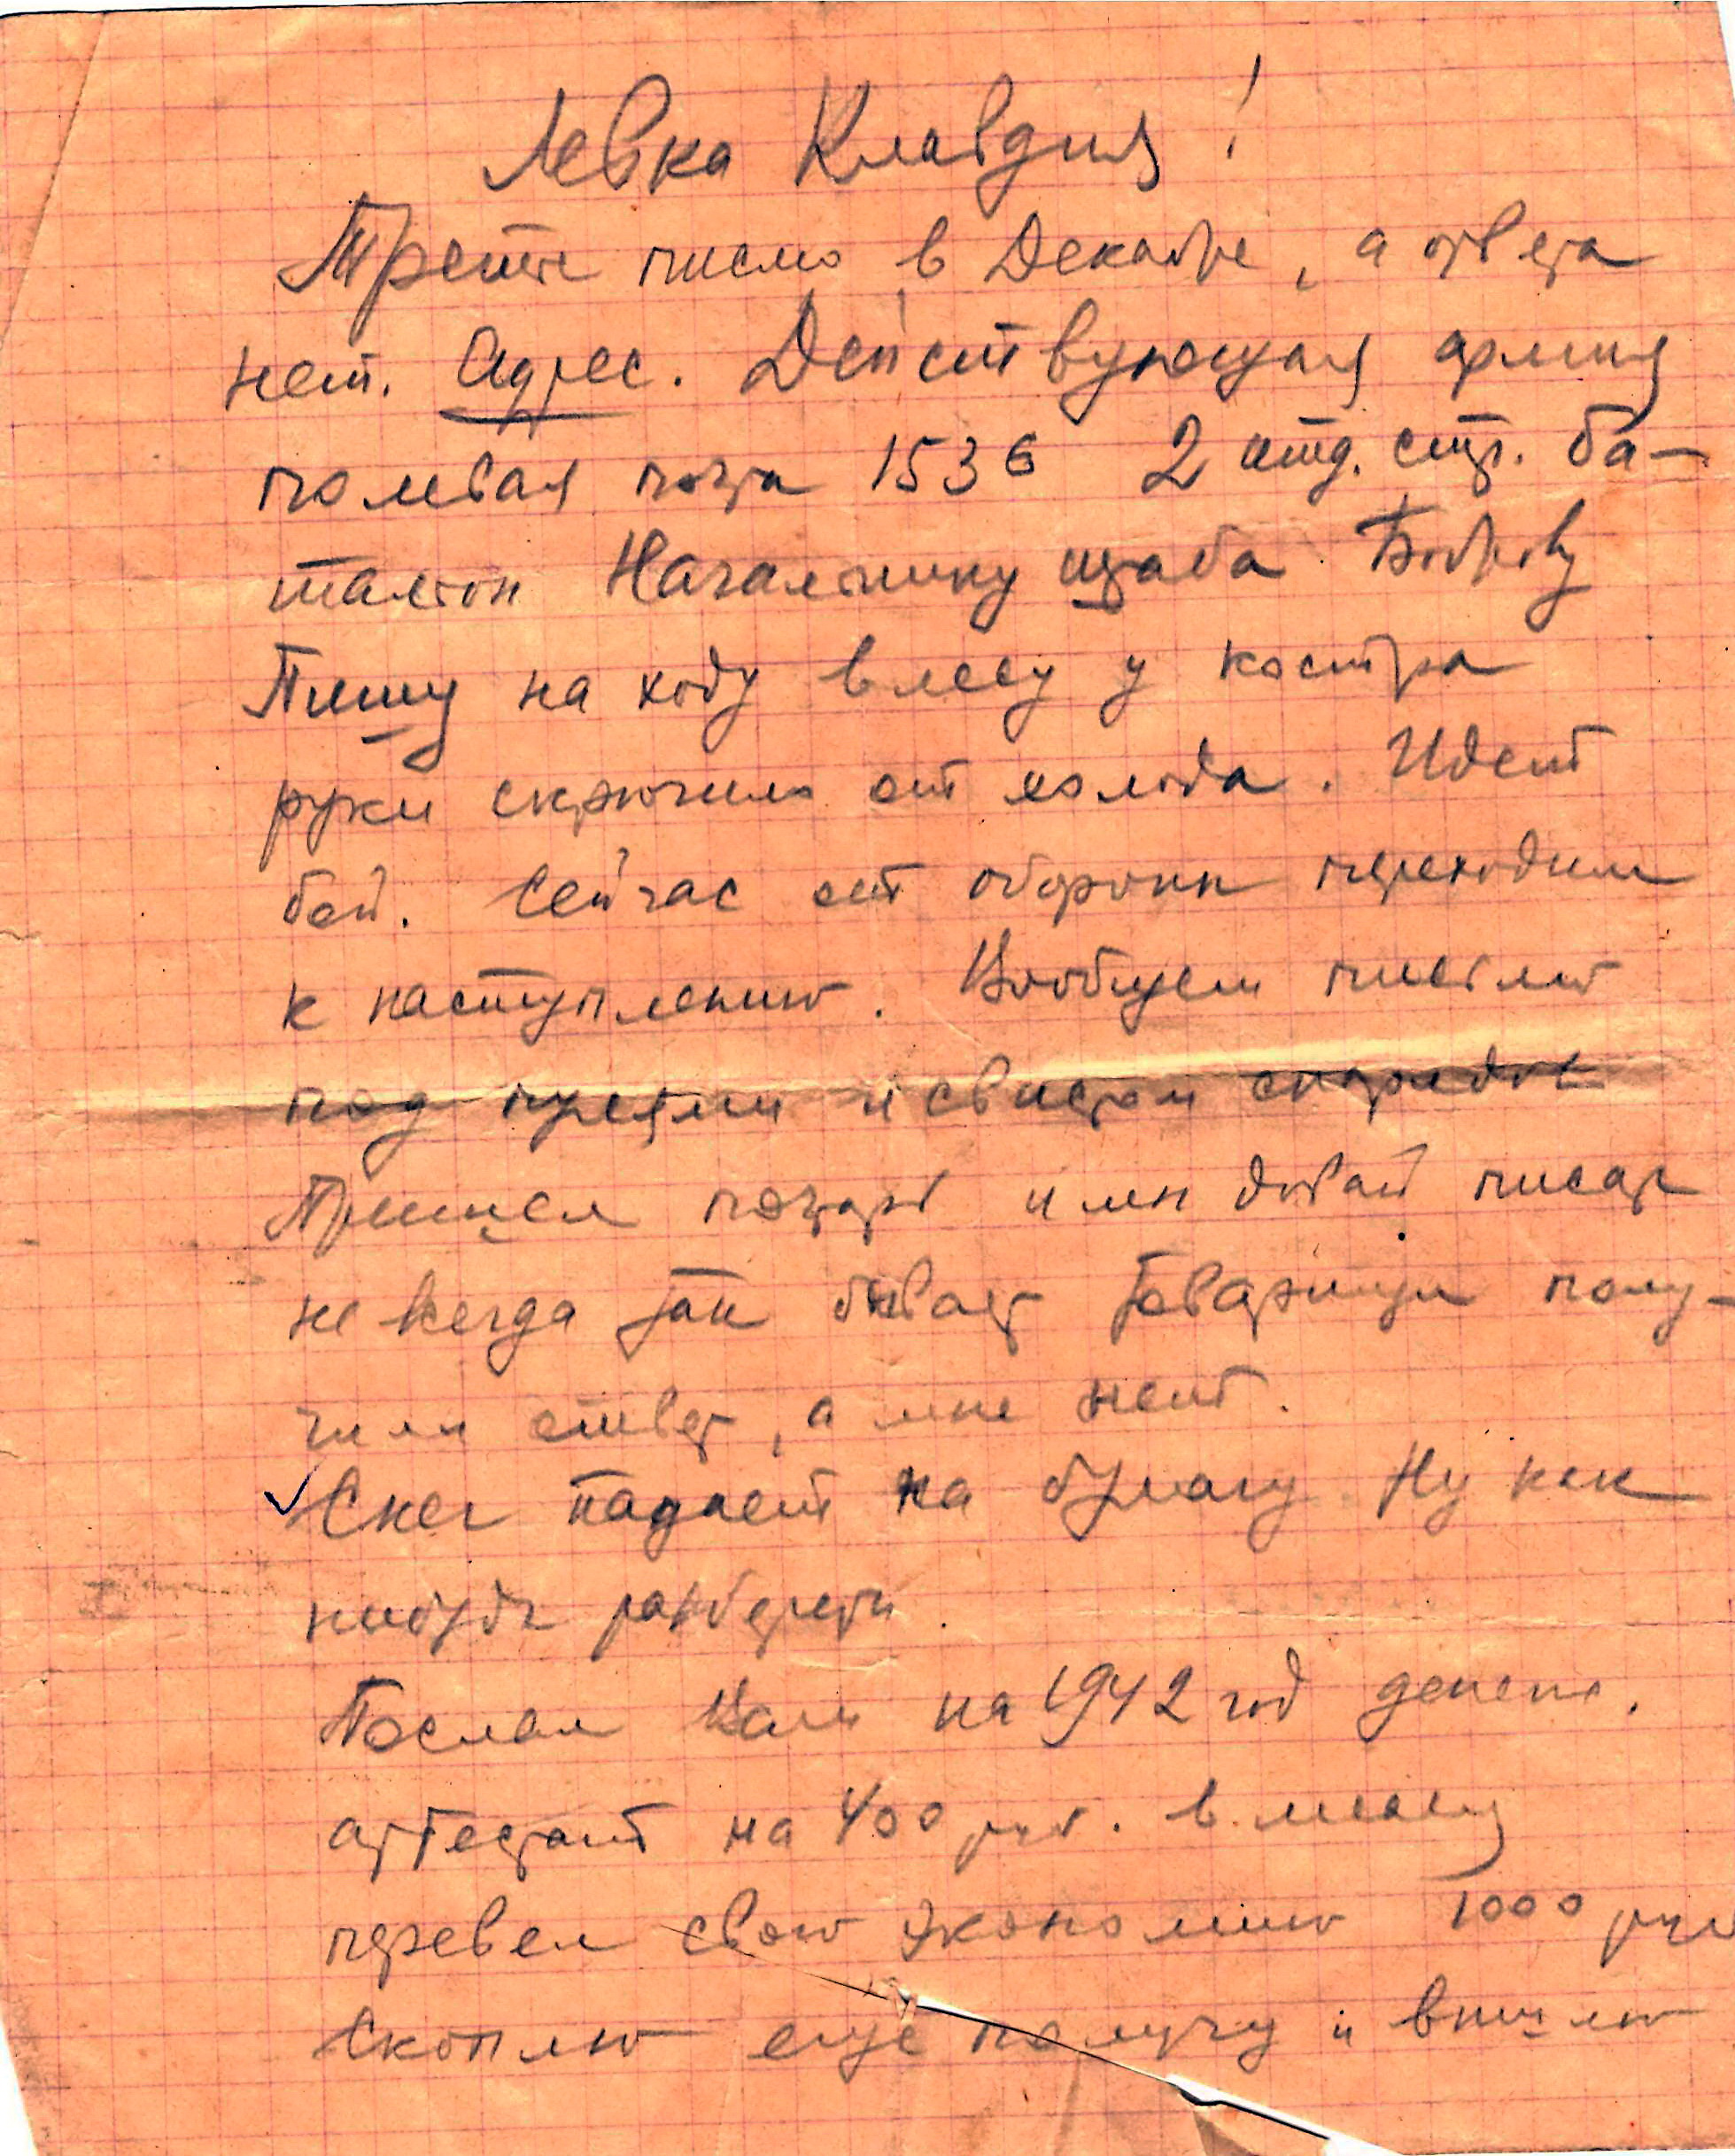 Левка Клавдия!
Третье писмо в Декабре, а ответа
нет. Адрес. Действующая армия
полевая почта 1536 2 отд. стр. ба-
тальон Начальнику штаба Боброву
Пишу на ходу в лесу у костра
руки скрючило от холода. Идет
бой. Сейчас от обороны переходим
к наступлению. Вообщем писмо
под пулями и свистом снарядов
Пришел почтарь и мы давай писать
не всегда так бывает Товарищи полу-
чили ответ, а мне нет.
Снег падает на бумагу. Ну как
нибудь разберете.
Послал Вам на 1942 год денеж.
аттестат на 400 руб. в месяц
перевел свою экономию 1000 руб
Скоплю еще получу и вышлю